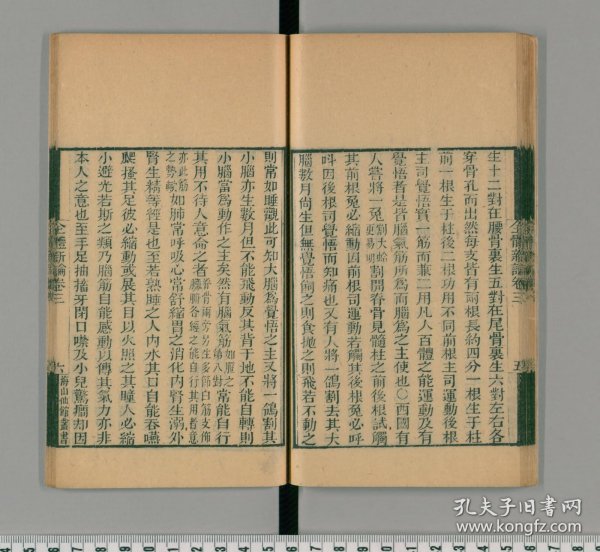 生十二對在腰骨裏生五對在尾骨裏生六對左右各
穿骨孔而出然每支皆有兩根長約四分一根生于柱
前一根生于柱後二根功用不同前根主司運動後根
主司覺悟實一筋而兼二用凡人百體之能運動及有
覺悟者是皆腦氣筋所爲而腦爲之主使也○西國有
人嘗將一兔 割開脊骨見髓柱之前後根試觸
其前根兔必縮動因前根司運動若觸其後根兔必呼
叫因後根司覺悟而知痛也又有人將一鴿割去其大
腦數月尚生但無覺悟飼之則食拋之則飛若不動之
全體新論卷三
五
則常如睡觀此可知大腦爲覺悟之主又將一鴿割其
小腦亦生數月但不能飛動反其背于地不能自轉則
小腦當爲動作之主矣然有腦氣筋 常能自行
其用不待人意命之者
如肺常呼吸心常舒縮胃之消化內腎生溺外
腎生精等徑是也至若熟睡之人內水其口自能吞嚥
爬搔其足彼必縮動或展其目以火照之其瞳人必縮
小避光若斯之類乃腦筋自能感動以傳其氣力亦非
本人之意也至手足抽搐牙關口噤及小兒驚癇却因
全體新論卷三
六
海山仙館叢書
孔夫子旧书网
www.kongfz.com